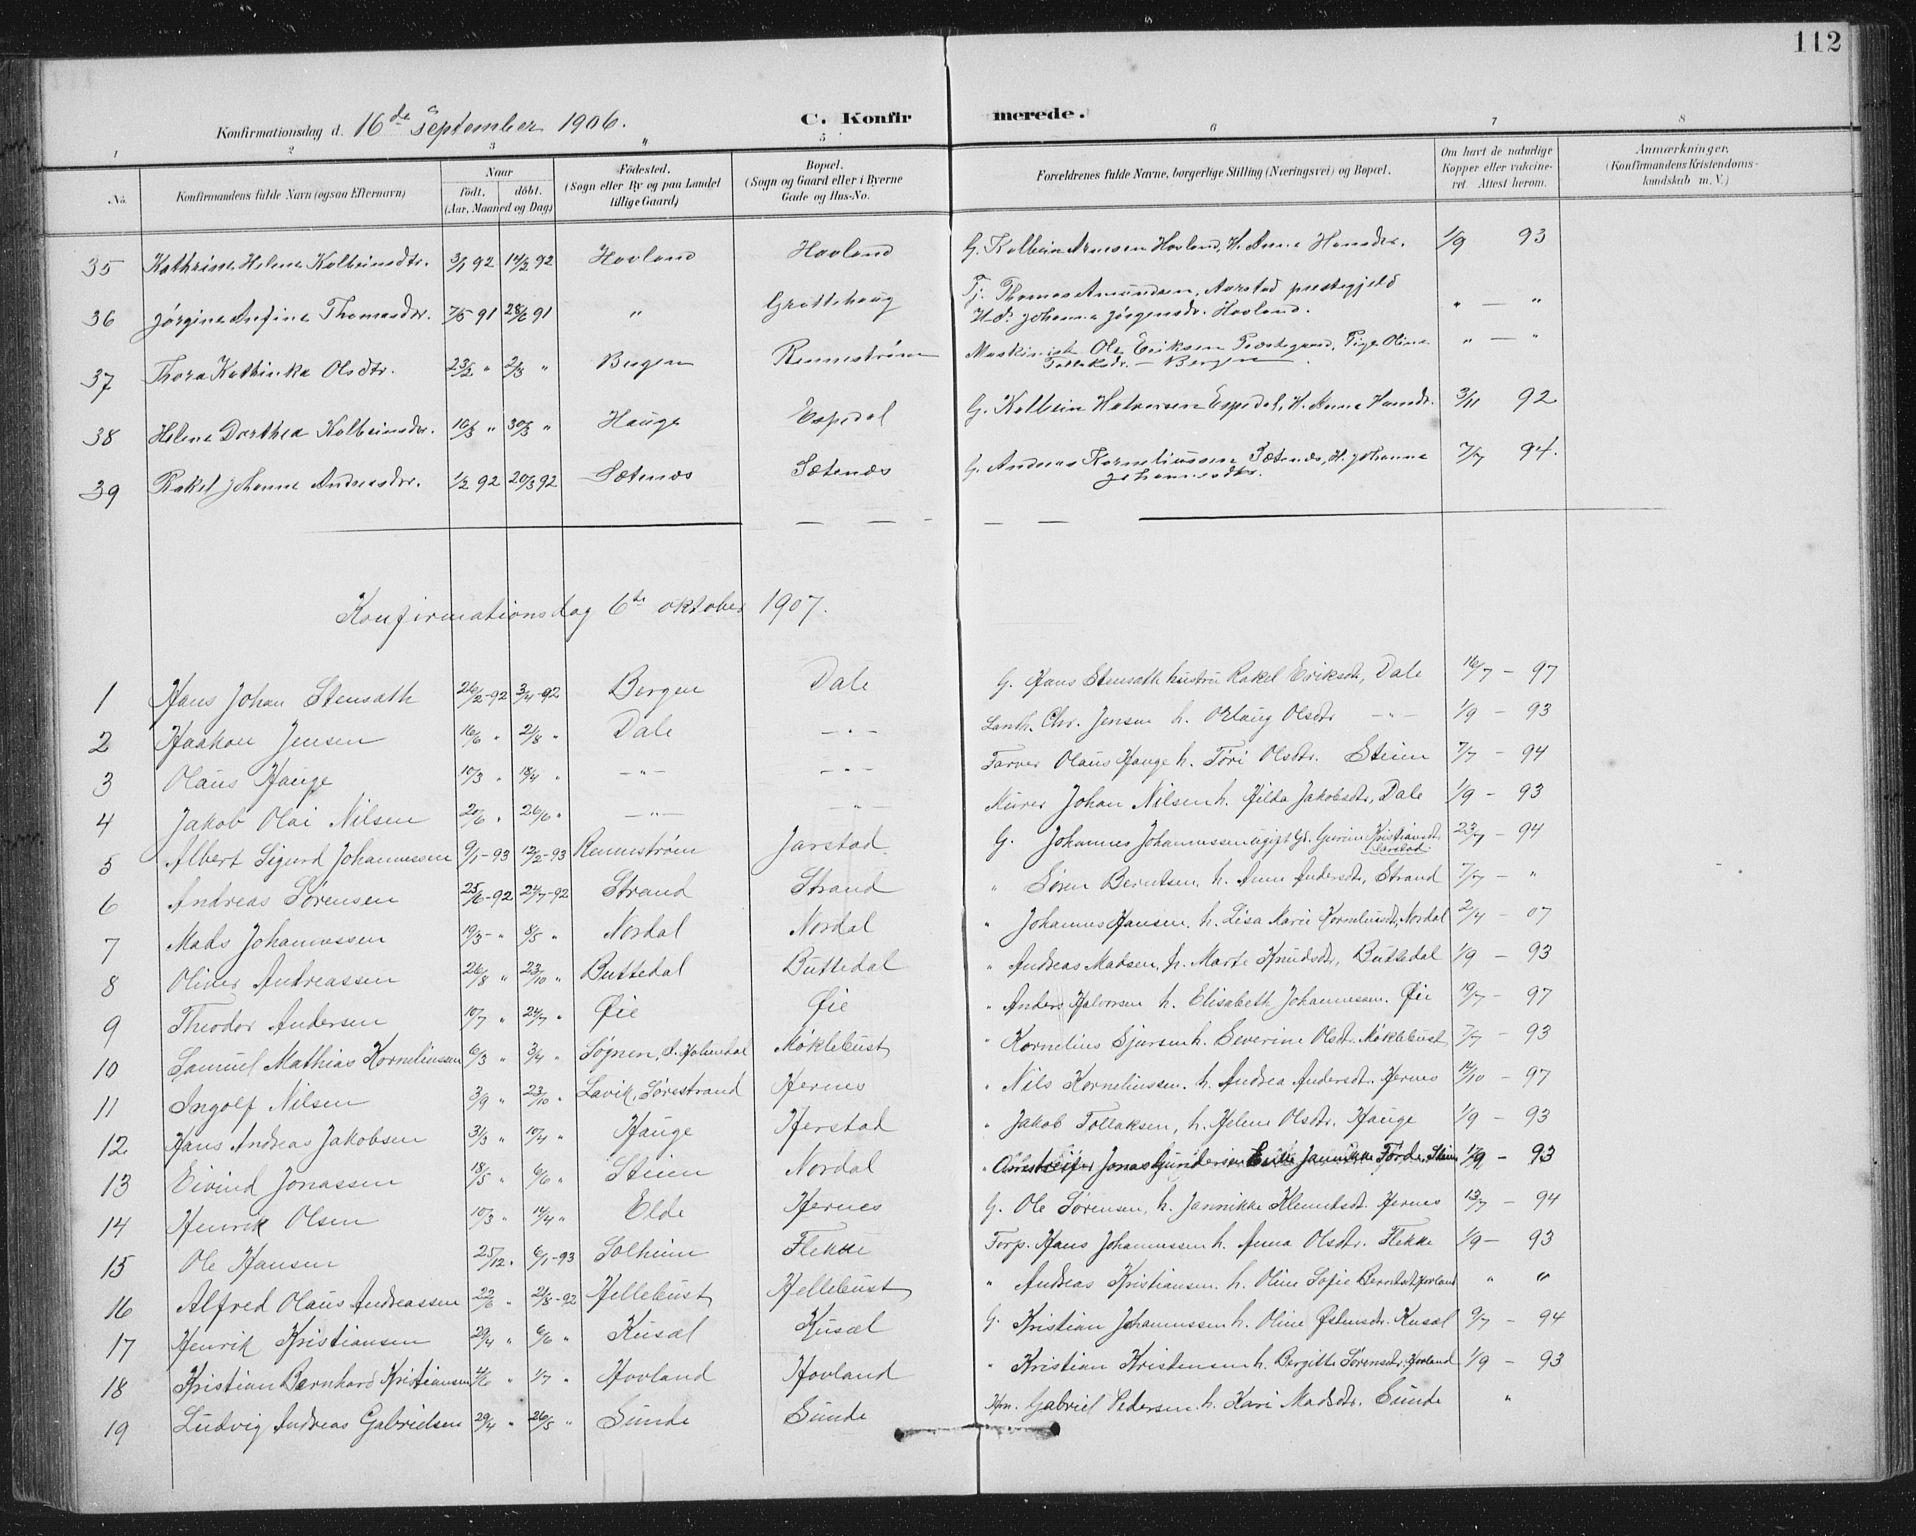 112
Konfirmationsdag d. 16de September 1906.
C. Konfirmerede.
1 2 3 4 5 6 7 8
No.
Konfirmandens fulde Navn (ogsaa Efternavn)
Naar
født. døbt.
(Aar, Maaned og Dag)
Fødested.
(Sogn eller By og paa Landet
tillige Gaard)
Bopæl.
(Sogn og Gaard eller i Byerne
Gade og Hus-No.
Forældrenes fulde Navne, borgerlige Stilling (Næringsvei) og Bopæl.
Om havt de naturlige
Kopper eller vakcine-
ret. Attest herom.
Anmærkninger.
(Konfirmandens Kristendoms-
kundskab m. V.)
35 Kathrine Helene Kolbeinsdtr. 3/1 92 14/2 92 Hovland Hovland G. Kolbein Arnesen Hovland, H. Anna Hansdr. 1/9 93
36 Jørgine Anfine Thomasdr. 7/5 91 28/6 91 " Grøttehaug Tj. Thomas Amundsen, Aarstad prestegjeld
H.d. Johanne Jørgensdr. Hovland. " — "
37 Thora Kathinka Olsdtr. 23/2 " 2/8 " Bergen Rennestrøm Maskinist Ole Eriksen Tvedtegaard, Pige Oline
Tollaksdr. — Bergen. " — "
38 Helene Dorthea Kolbeinsdr. 16/3 " 30/3 " Hauge Espedal G. Kolbein Halvorsen Espedal, H. Anna Hansdr. 3/11 92
39 Rakel Johanne Andreasdr. 1/2 92 20/3 92 Sætenes Sætenes G. Andreas Korneliussen Sætenes, H. Johanne
Johannesdtr. 7/7 94.
Konfirmationsdag 6te oktober 1907.
1 Hans Johan Stensath 26/2-92 3/4-92 Bergen Dale G. Hans Stensath hustru Rakel Eriksdt, Dale 16/7 - 97
2 Haakon Jensen 16/6 " 21/8 " Dale — " — Lanth. Chr. Jensen h. Oslaug Olsdtr — " — 1/9 - 93
3 Olaus Hauge 10/3 " 18/4 " — " — — " — Farver Olaus Hauge h. Tøri Olsdtr. Steien 7/7 - 94
4 Jakob Olai Nilsen 20/6 " 26/6 " — " — — " — Murer Johan Nilsen h. Hilda Jakobsdtr, Dale 1/9 - 93
5 Albert Sigurd Johannessen 9/1-93 12/2-93 Rennestrøm Jarstad G. Johannes Johannessen ugift Gd. Gurine Kristiansdt
Jarstad. 23/7 - 94
6 Andreas Sørensen 25/6-92 24/7-92 Strand Strand " Søren Berntsen, h. Anne Andersdt, Strand 7/7 - "
7 Mads Johannessen 19/3 - " 8/5 " Nordal Nordal " Johannes Hansen, h. Lisa Marie Korneliusdt, Nordal 2/4 - 07
8 Oliver Andreassen 26/8 " 23/10 " Buttedal Buttedal " Andreas Madsen, h. Marte Knudsdtr, Buttedal 1/9 - 93
9 Theodor Andersen 10/7 " 24/7 " Øie Øie " Anders Halvorsen h. Elisabeth Johannessen. Øie 19/7 - 97
10 Samuel Mathias Korneliussen 6/3 " 3/4 " Søgnen, Møklebust " Kornelius Sjursen h. Severine Olsdtr. Møklebust 7/7 - 93
11 Ingolf Nilsen 3/9 " 23/10 " Lavik, Sørestrand Hernes " Nils Korneliussen. h. Andrea Andersdt. Hernes 14/10 - 97
12 Hans Andreas Jakobsen 3/3 " 10/4 " Hauge Herstad " Jakob Tollaksen, h. Helene Olsdtr. Hauge 1/9 - 93
13 Eivind Jonassen 18/5 " 6/6 " Steien Nordal " Jonas Gundersen Jannikke Førde, Steien 1/9 - 93
14 Henrik Olsen 10/3 " 14/4 " Elde Hernes G. Ole Sørensen, h. Jannikke Klemetsdt. Hernes 13/7 - 94
15 Ole Hansen 25/12 " 6/1-93 Solheim Flekke Forp. Hans Johannessen h. Anna Olsdtr. Flekke 1/9 - 93
16 Alfred Olaus Andreassen 22/6 " 21/8-92 Hellebust Hellebust " Andreas Kristiansen h. Oline Sofie Berntsdt Hovland " "
17 Henrik Kristiansen 29/4 " 6/6 " Kusæl Kusæl G. Kristian Johannessen h. Oline Østensdr. Kusæl 9/7 - 94
18 Kristian Bernhard Kristiansen 4/6 " 1/7 " Hovland Hovland " Kristian Kristensen h. Bergitte Sørensdtr. Hovland 1/9 - 93
19 Ludvig Andreas Gabrielsen 29/4 " 26/5 " Sunde Sunde Hm. Gabriel Pedersen. h. Kari Madsdtr. Sunde "